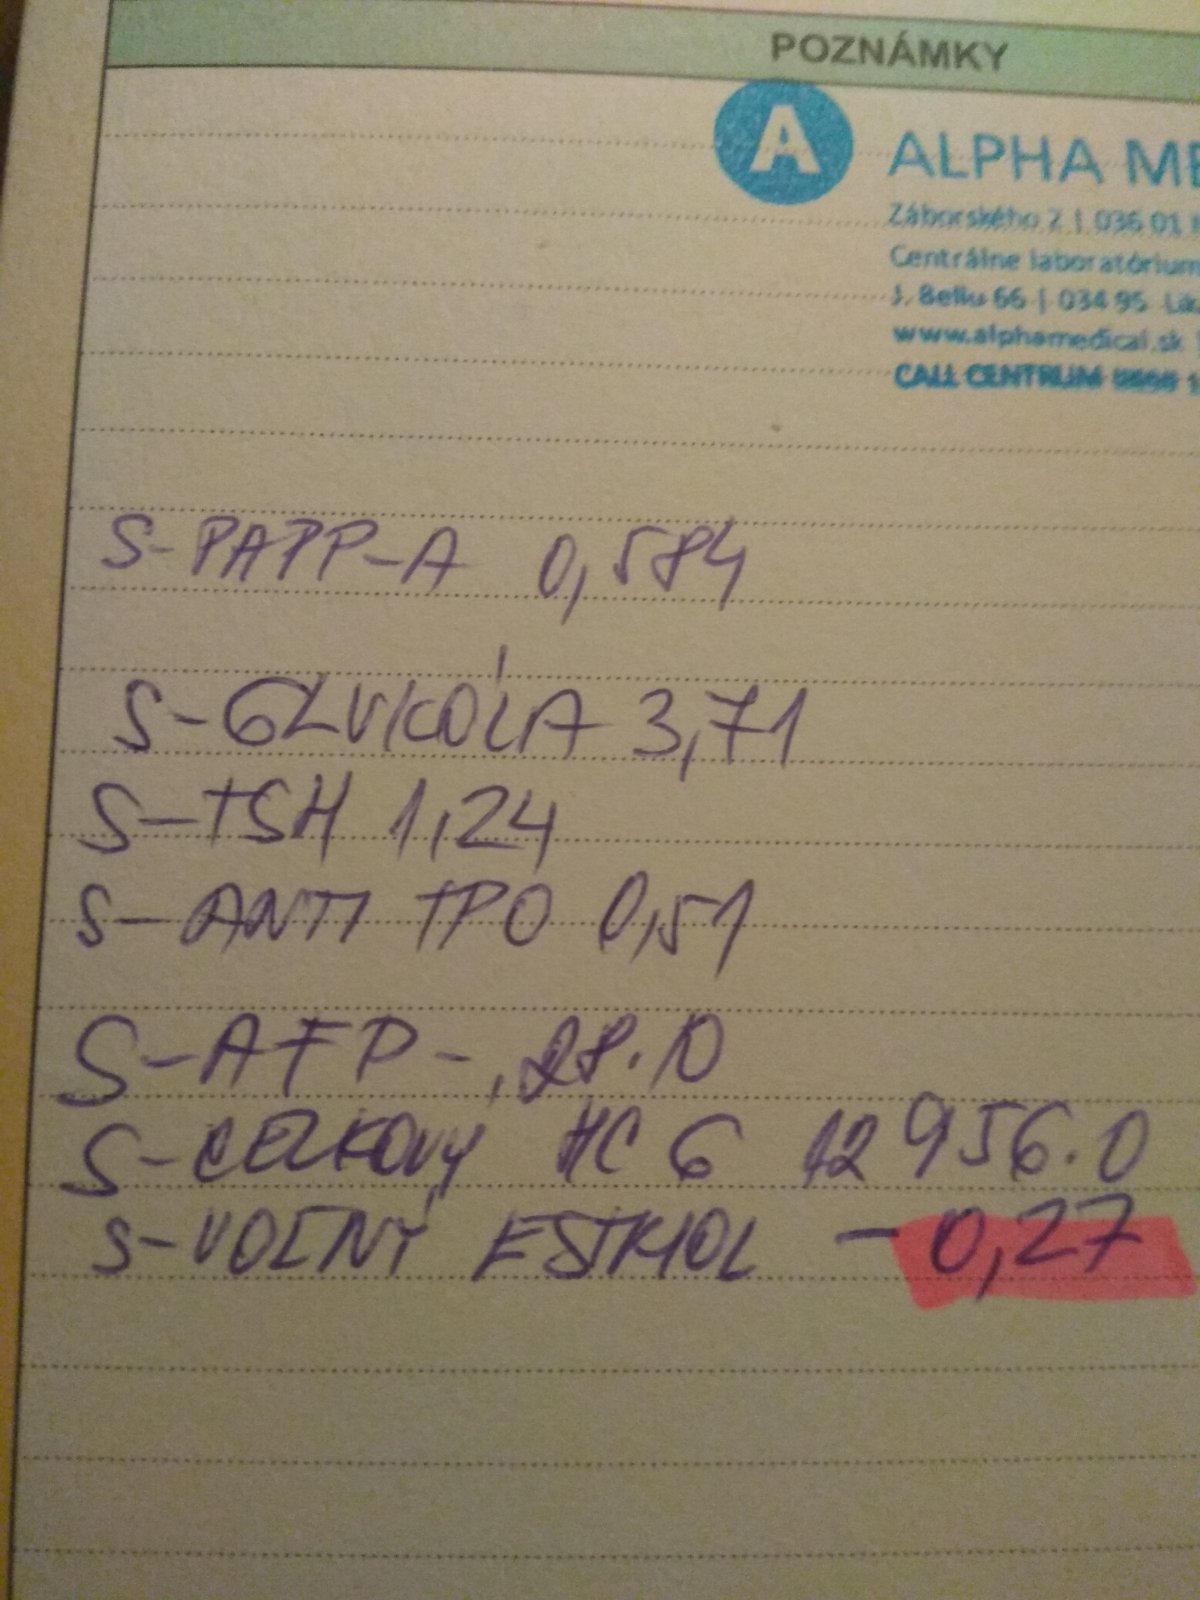 POZNÁMKY
A ALPHA ME
Záborského 2 | 036 01
Centrálne laboratórium
J. Bellu 66 | 034 95 Lik
www.alphamedical.sk
CALL CENTRUM
S-PAPP-A 0,584
S-GLUKÓZA 3,71
S-TSH 1,24
S-ANTI TPO 0,51
S-AFP- 28.10
S-CELKOVÝ HCG 12956.0
S-VOĽNÝ ESTRIOL - 0,27